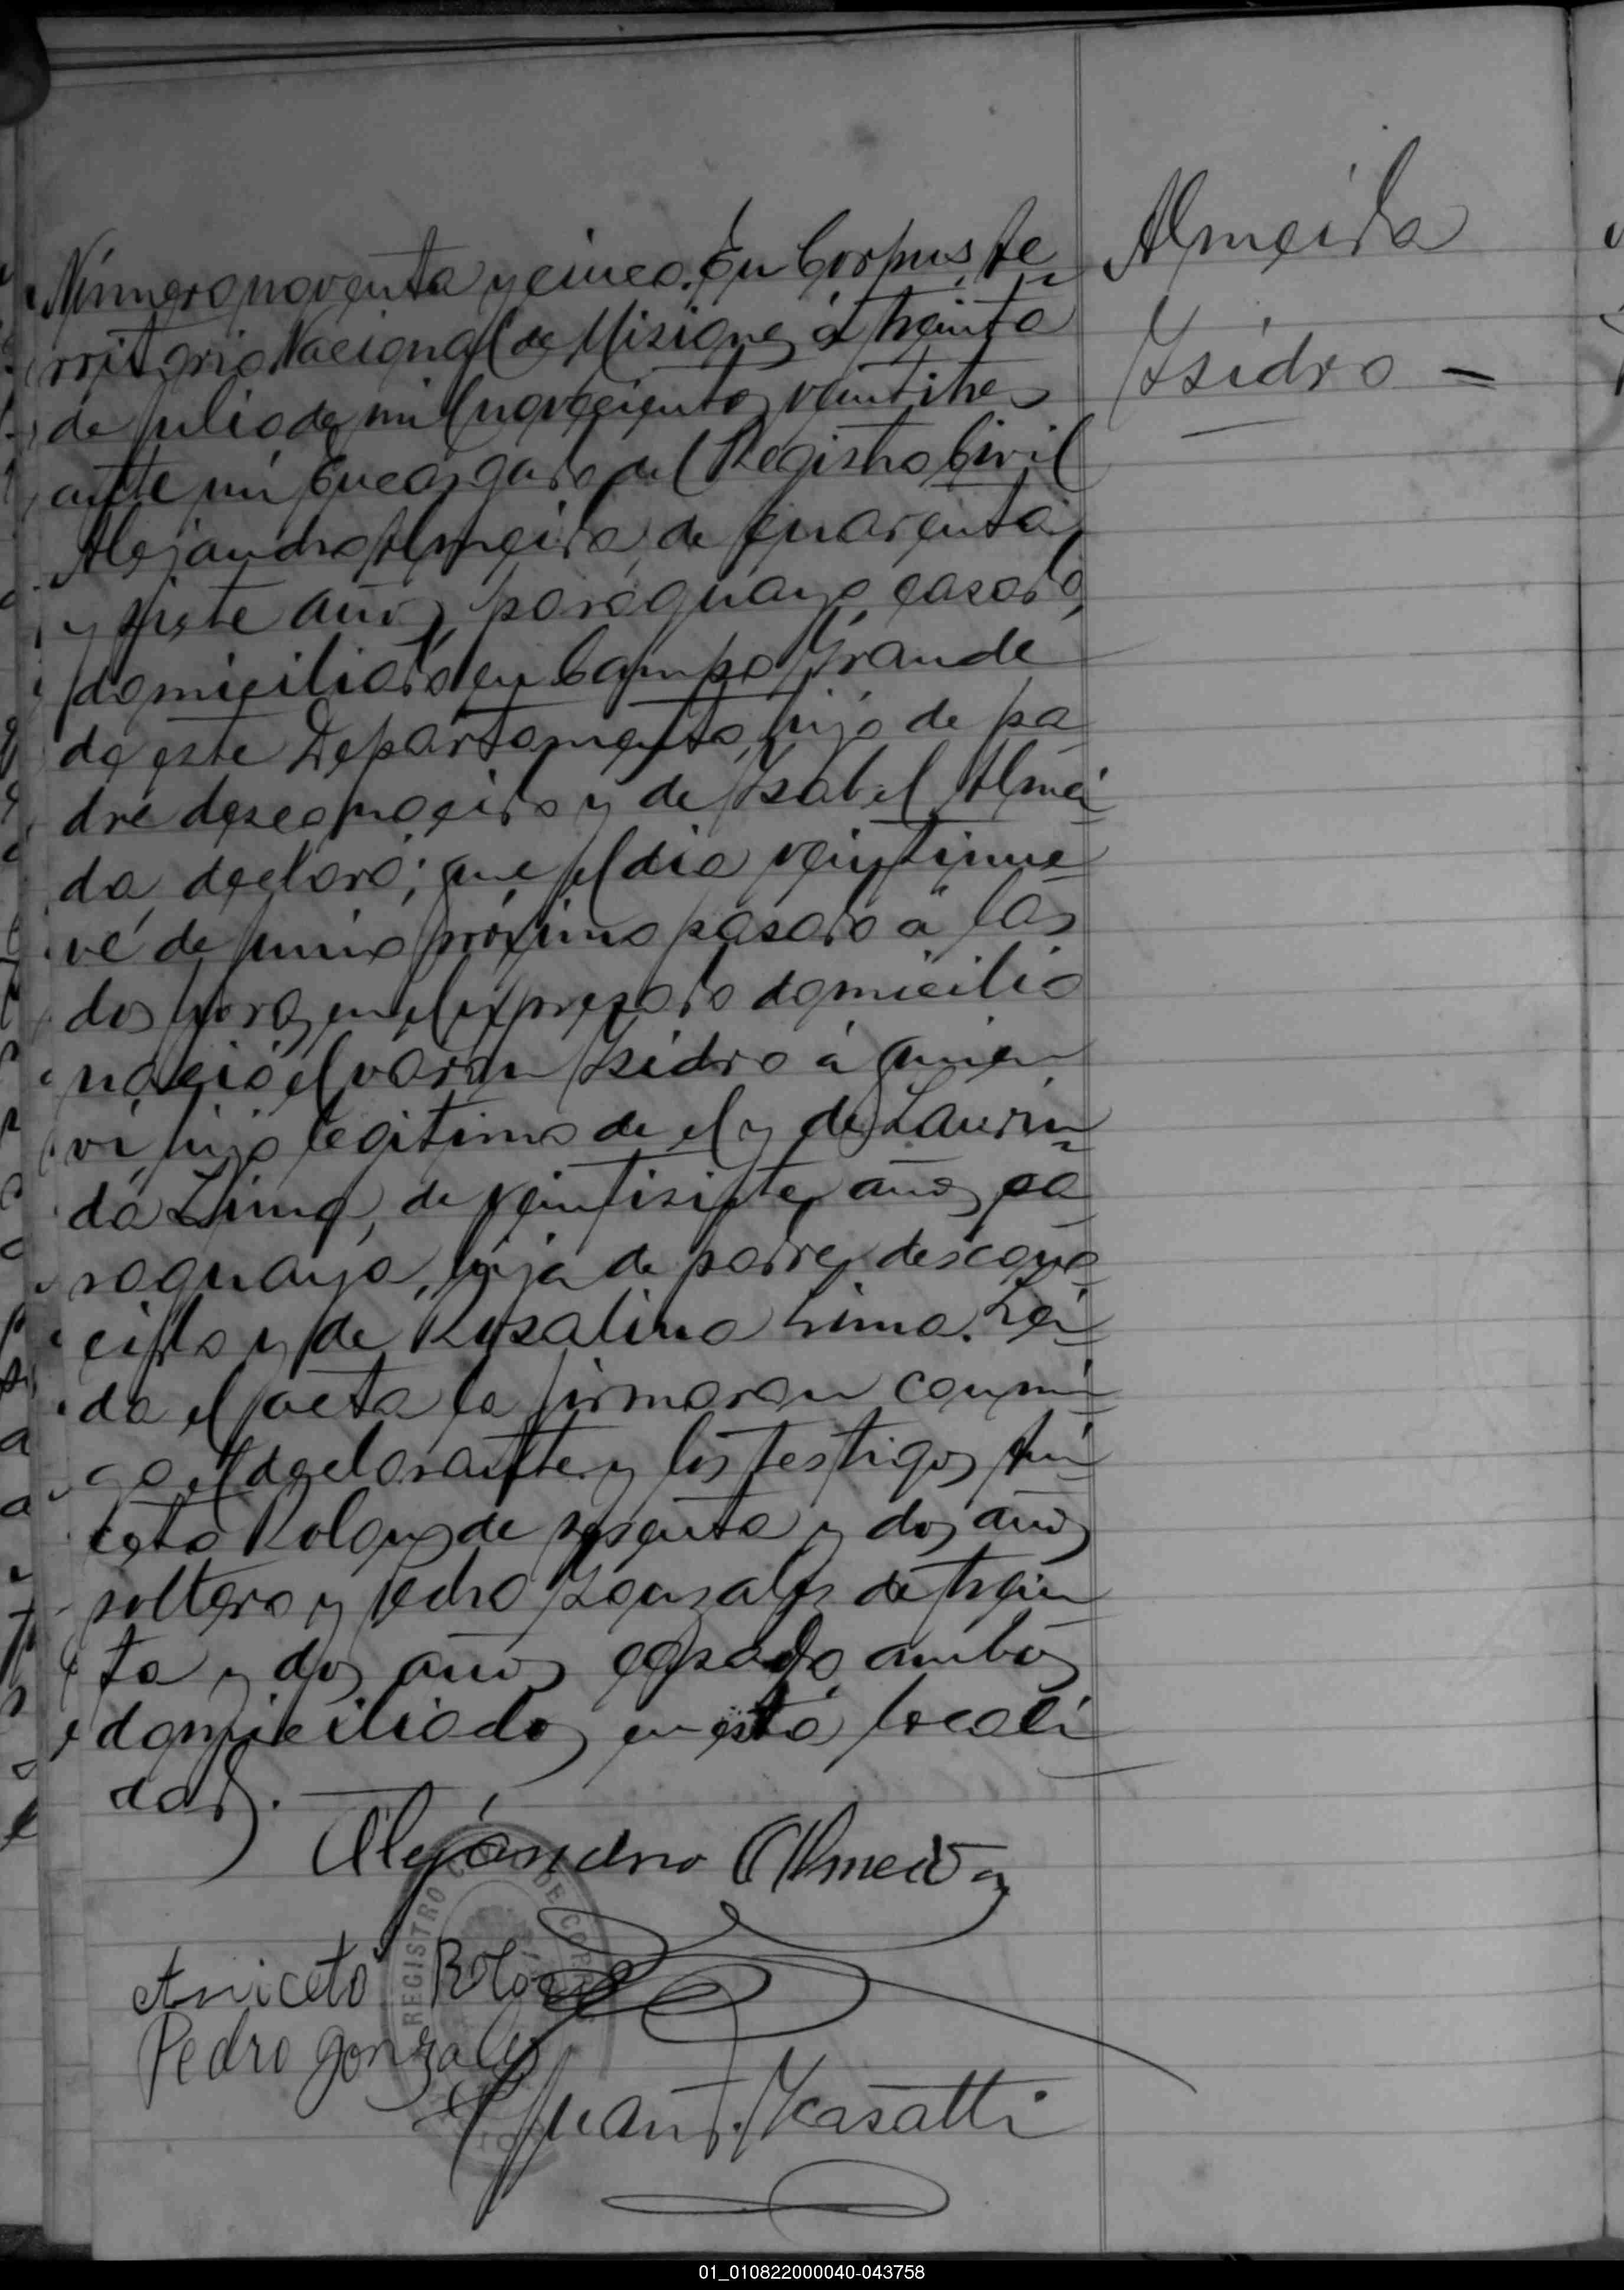 Almeida
Isidro =
Número noventa y cinco. En Corpus, Te
rritorio Nacional de Misiones, á treinta
de julio de mil novecientos veintitres
ante mi Encargado del Registro Civil
Alejandro Almeida, de cuarenta
y siete años, paraguayo, casado,
domiciliado en Campo Grande
de este Departamento, hijo de pa
dre desconocido y de Isabel Almei
da declaró; que el dia veintinue
ve de junio próximo pasado á las
dos horas, en el expresado domicilio
nació el varon Isidro á quien
vi, hijo legitimo de el y de Laurin
da Lima, de veintisiete años, pa
raguaya, hija de padre descono
cido y de Rosalina Lima. Lei
da el acta la firmaron conmi
go el declarante y los testigos Ani
ceto Rolon, de sesenta y dos años
soltero y Pedro Gonzales de trein
ta y dos años casado, ambos
domiciliados en esta locali
dad.
Alejandro Almeida
Aniceto Rolon
Pedro Gonzales
Juan Casatti
REGISTRO DE CORPUS
01_010822000040-043758